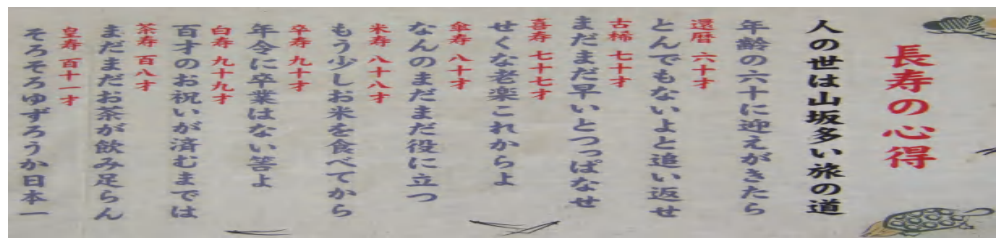 長寿の心得
人の世は山坂多い旅の道
年齢の六十に迎えがきたら
還暦 六十才
とんでもないよと追い返せ
古稀 七十才
まだまだ早いとつっぱなせ
喜寿 七十七才
せくな老楽これからよ
傘寿 八十才
なんのまだまだ役に立つ
米寿 八十八才
もう少しお米を食べてから
卒寿 九十才
年令に卒業はない筈よ
白寿 九十九才
百才のお祝いが済むまでは
茶寿 百八才
まだまだお茶が飲み足らん
皇寿 百十一才
そろそろゆずろうか日本一